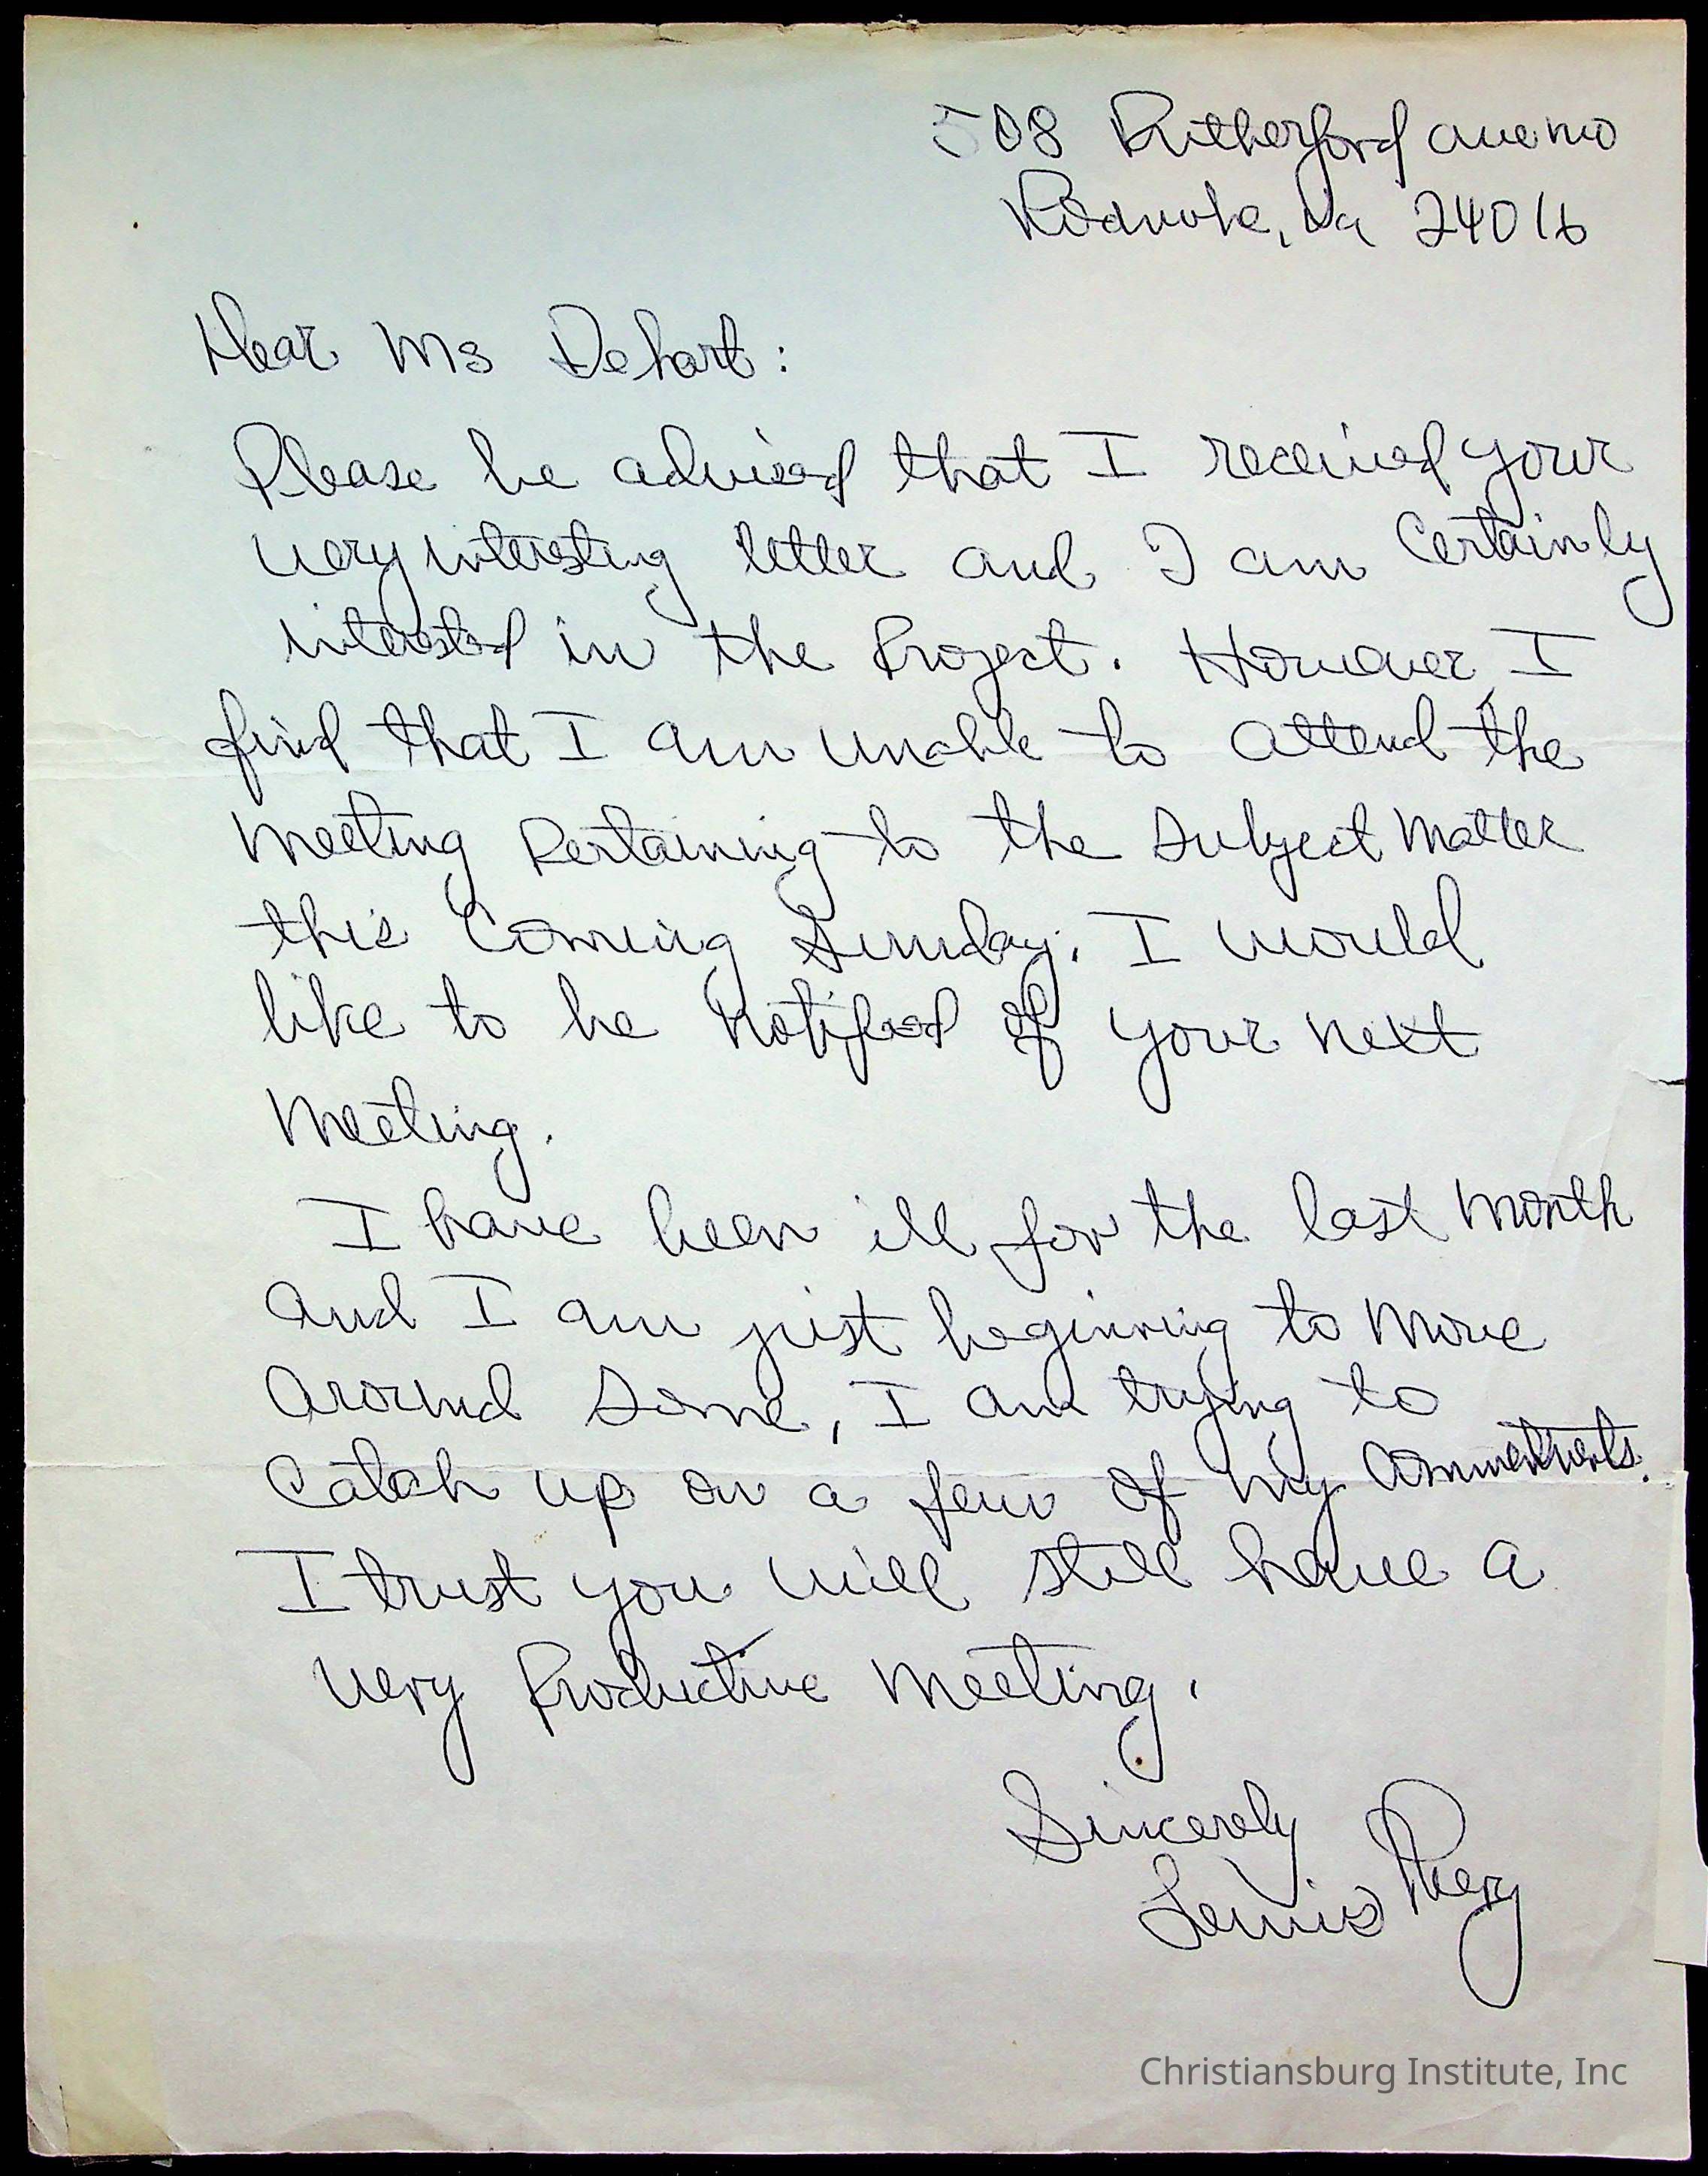 508 Rutherford Ave NW
Roanoke, Va 24016
Dear Ms Dehart:
Please be advised that I received your
very interesting letter and I am Certainly
interested in the Project. However, I
find that I am unable to attend the
Meeting Pertaining to the Subject Matter
this Coming Sunday. I would
like to be Notified of your next
Meeting.
I have been ill for the last Month
and I am just beginning to Move
Around Some, I am trying to
Catch up on a few of my Commitments.
I trust you will still have a
very Productive Meeting.
Sincerely
Lewis
Christiansburg Institute, Inc